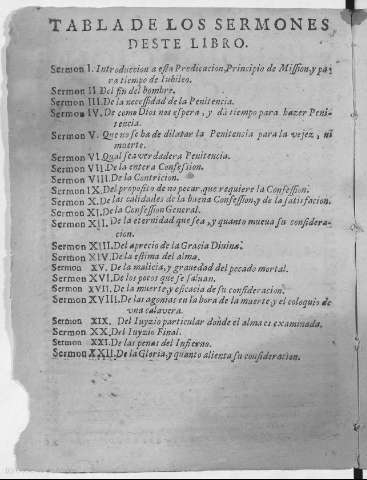 TABLA DE LOS SERMONES
DESTE LIBRO.
Sermon I. Introduccion a esta Predicacion, Principio de Mission, y pa
ra tiempo de Iubileo.
Sermon II Del fin del hombre.
Sermon III. De la necessidad de la Penitencia.
Sermon IV. De como Dios nos espera, y dà tiempo para hazer Peni-
tencia.
Sermon V. Que no se ha de dilatar la Penitencia para la vejez, ni
muerte.
Sermon VI. Qual sea verdadera Penitencia.
Sermon VII. De la entera Confession.
Sermon VIII. De la Contricion.
Sermon IX. Del proposito de no pecar, que requiere la Confession.
Sermon X. De las calidades de la buena Confession, y de la satisfacion.
Sermon XI. De la Confession General.
Sermon XII. De la eternidad que sea, y quanto mueua su considera-
cion.
Sermon XIII. Del aprecio de la Gracia Diuina.
Sermon XIV. De la estima del alma.
Sermon XV. De la malicia, y grauedad del pecado mortal.
Sermon XVI. De los pocos que se saluan.
Sermon XVII. De la muerte, y eficacia de su consideracion.
Sermon XVIII. De las agonias en la hora de la muerte, y el coloquio de
vna calavera.
Sermon XIX. Del Iuyzio particular donde el alma es examinada.
Sermon XX. Del Iuyzio Final.
Sermon XXI. De las penas del Infierno.
Sermon XXII. De la Gloria, y quanto alienta su consideracion.